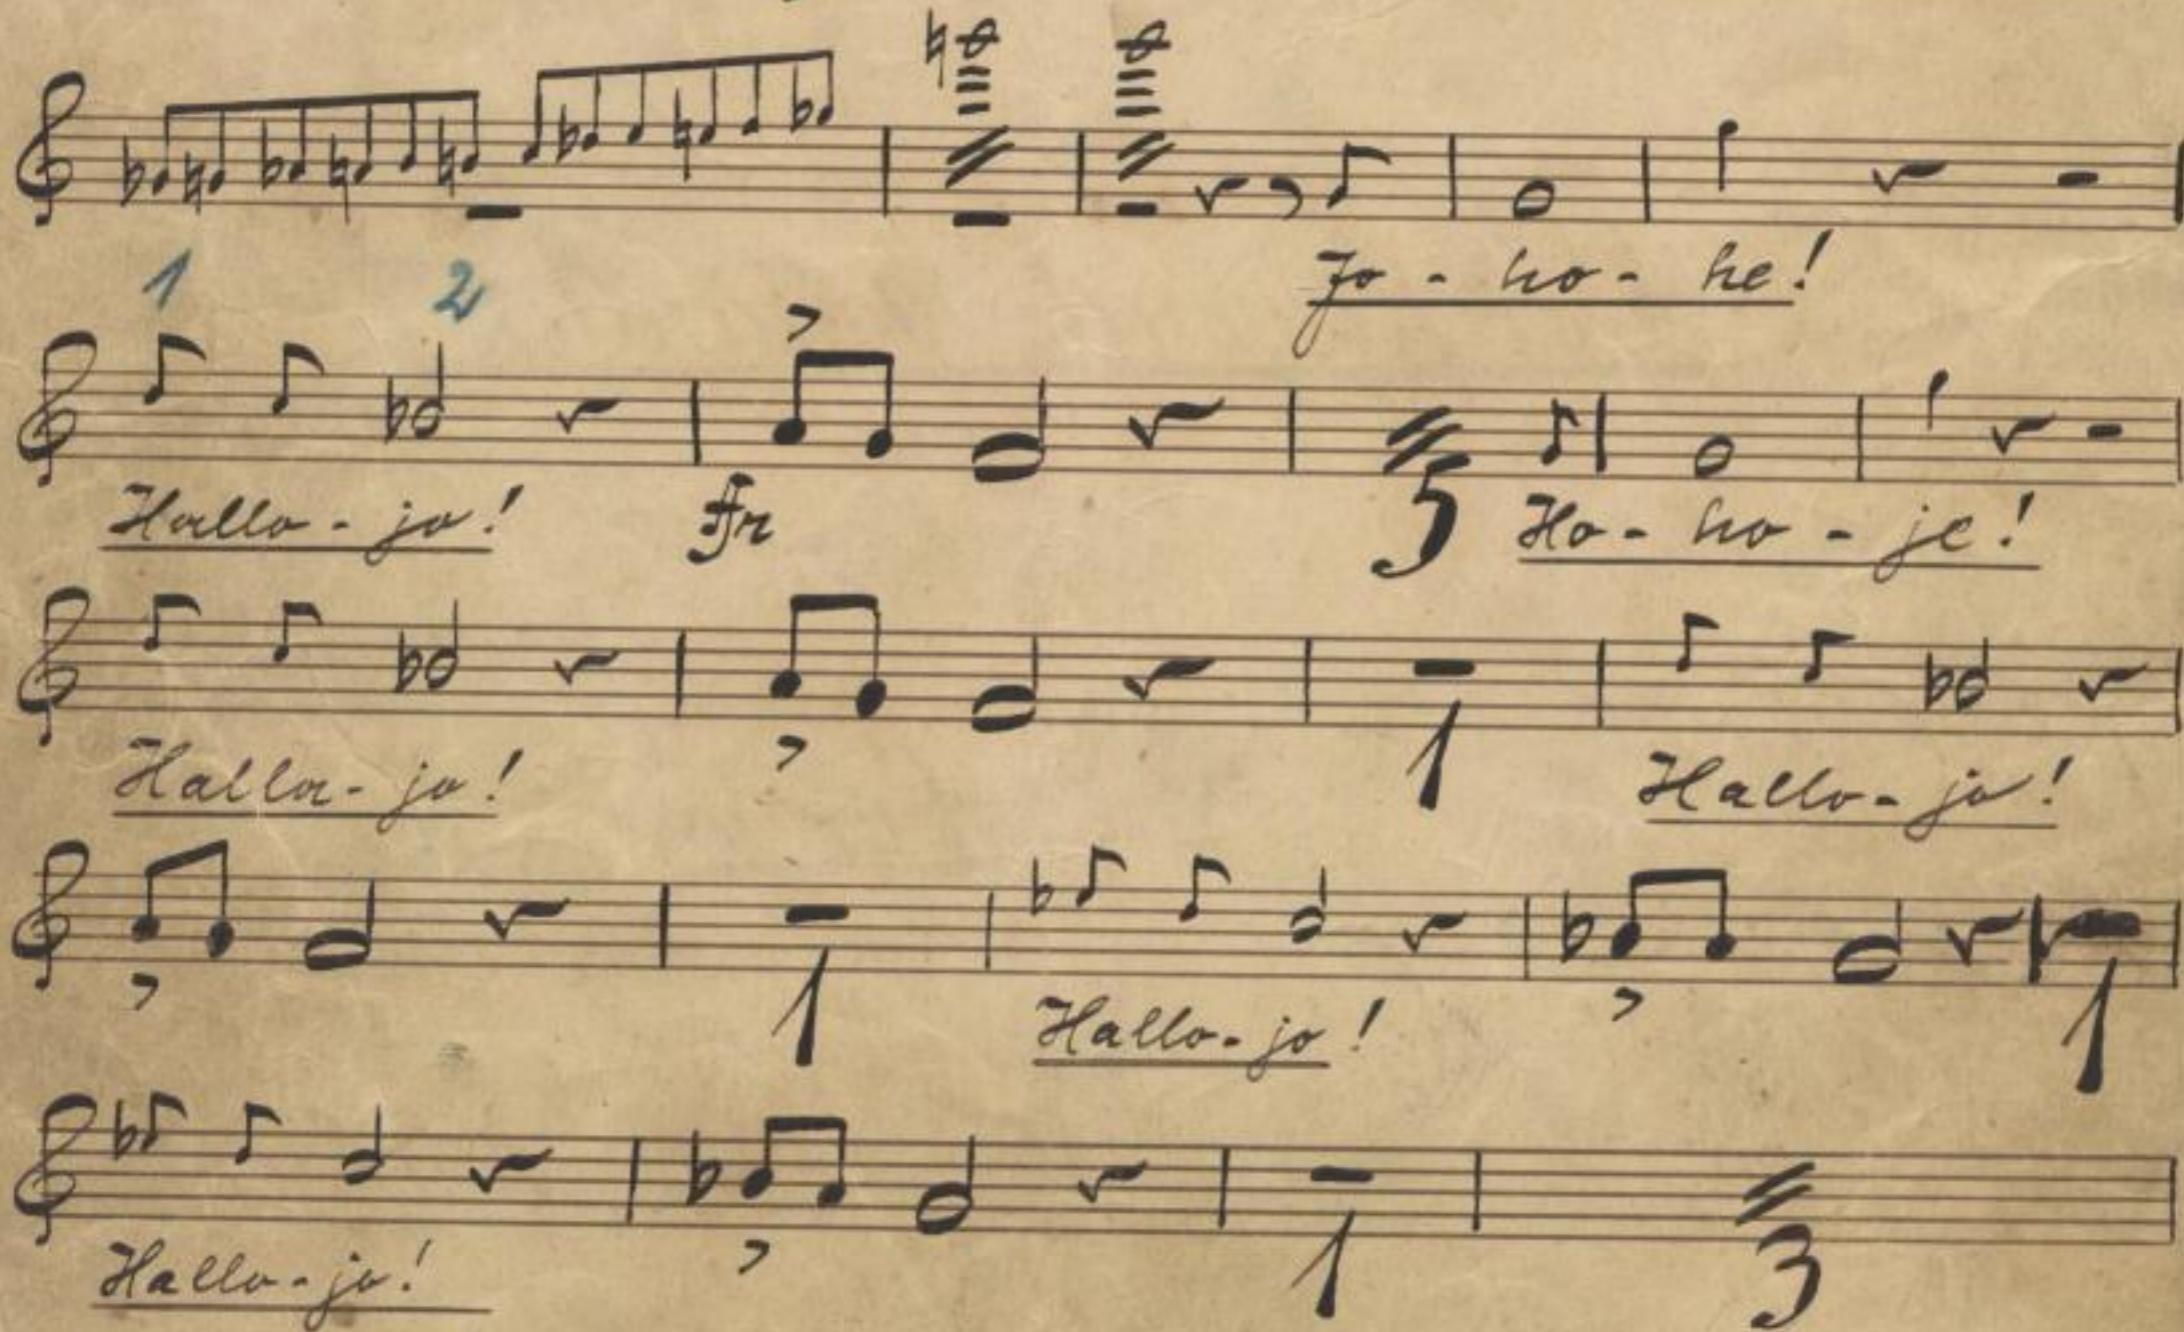 Jo - ho - he!
1 2
Hallo - jo! 5 Ho - ho - je!
Hallo - jo! 1 Hallo - jo!
1 Hallo - jo! 1
Hallo - jo! 1 3